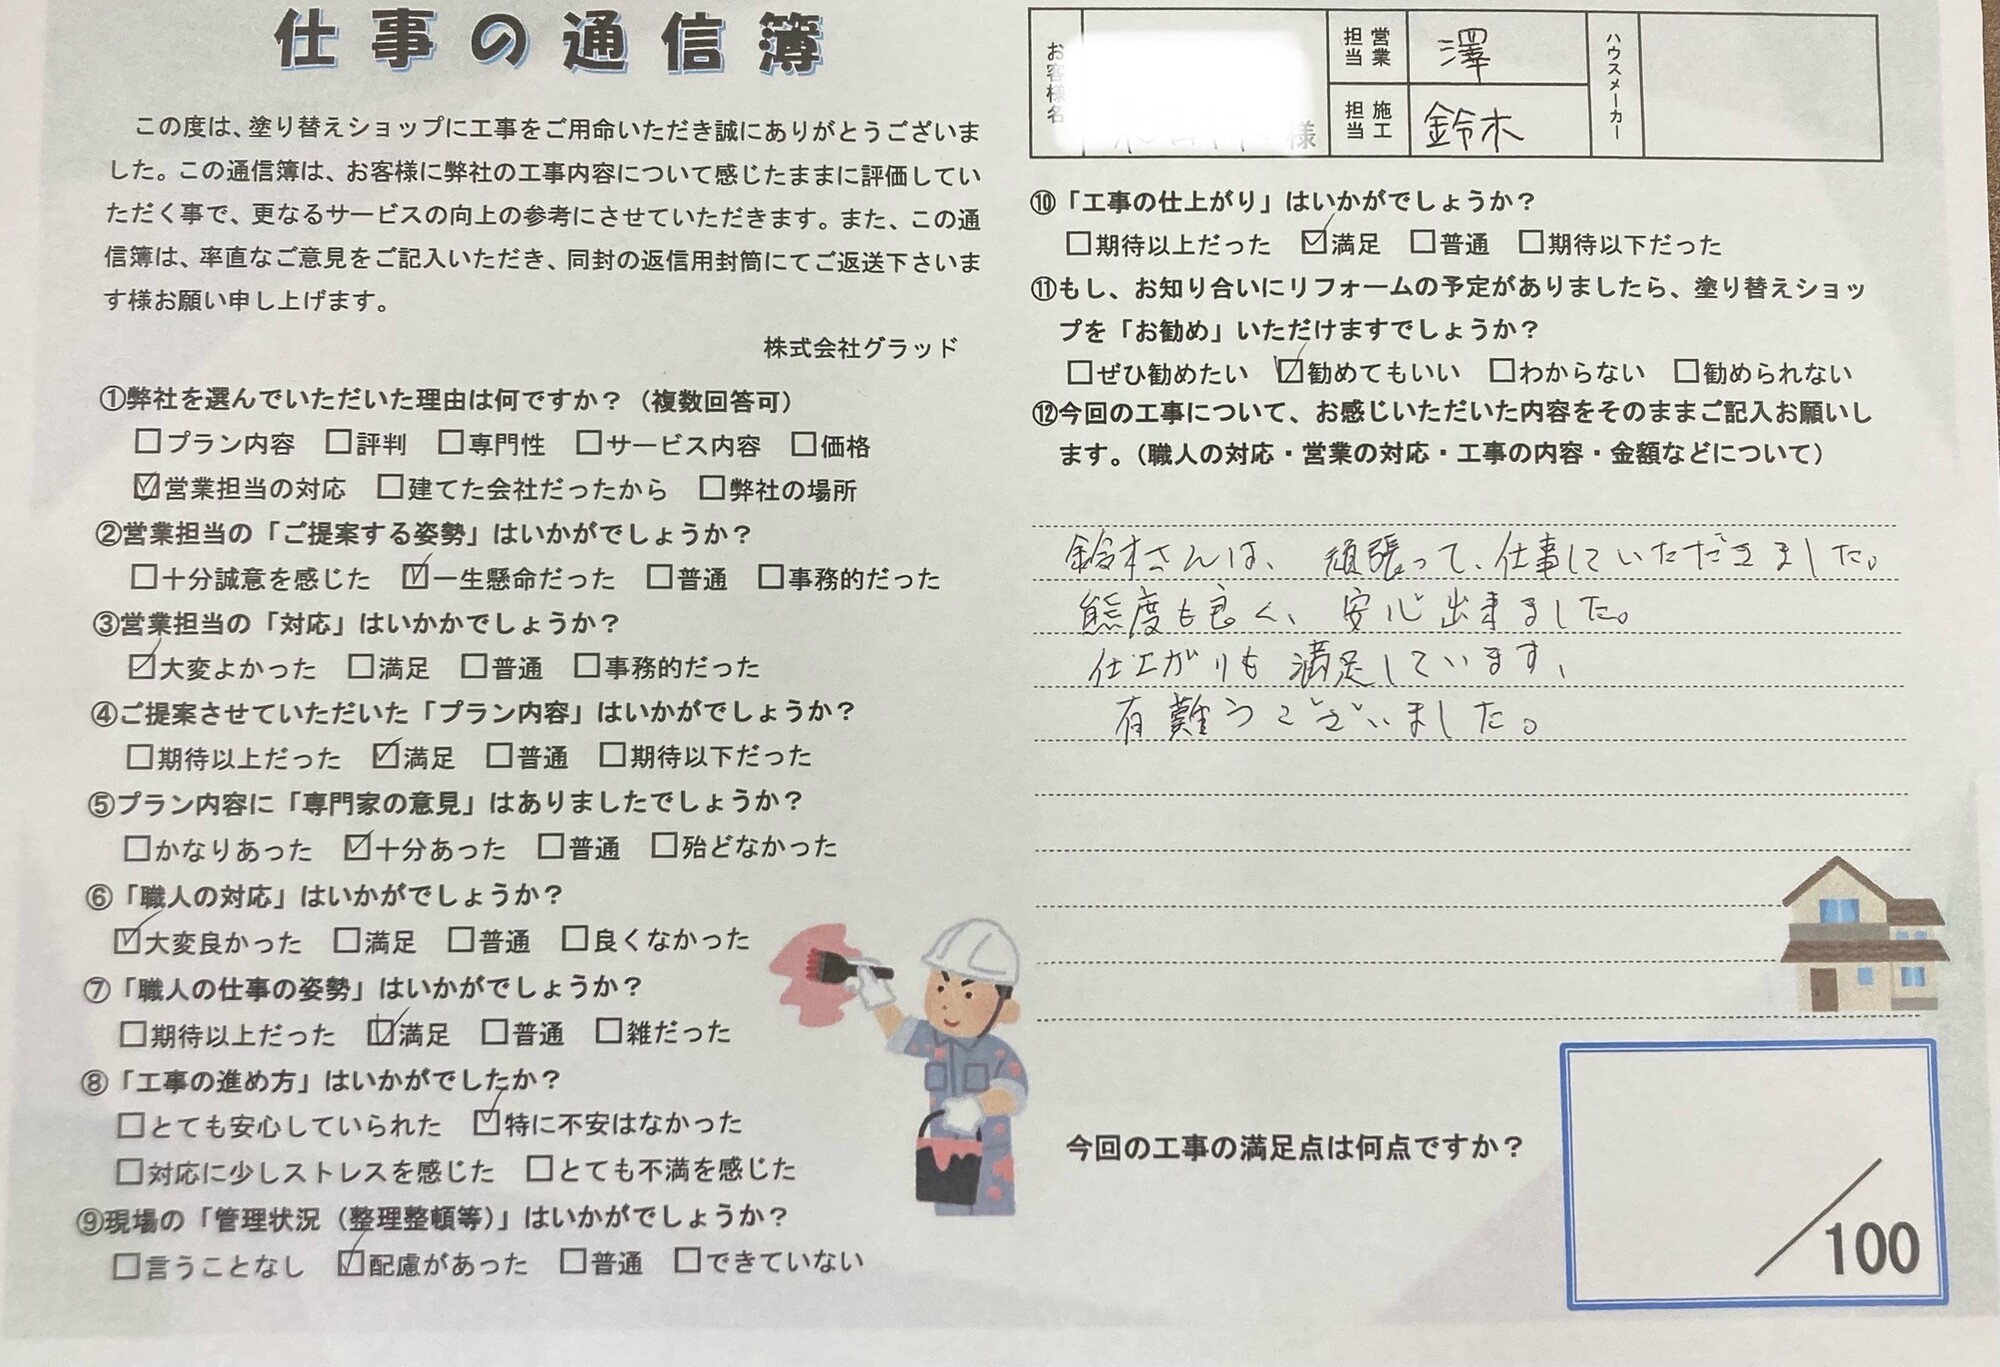 仕事の通信簿
この度は、塗り替えショップに工事をご用命いただき誠にありがとうございま
した。この通信簿は、お客様に弊社の工事内容について感じたままに評価してい
ただく事で、更なるサービスの向上の参考にさせていただきます。また、この通
信簿は、率直なご意見をご記入いただき、同封の返信用封筒にてご返送下さいま
す様お願い申し上げます。
株式会社グラッド
①弊社を選んでいただいた理由は何ですか？（複数回答可）
□プラン内容 □評判 □専門性 □サービス内容 □価格
☑営業担当の対応 □建てた会社だったから □弊社の場所
②営業担当の「ご提案する姿勢」はいかがでしょうか？
□十分誠意を感じた ☑一生懸命だった □普通 □事務的だった
③営業担当の「対応」はいかかでしょうか？
☑大変よかった □満足 □普通 □事務的だった
④ご提案させていただいた「プラン内容」はいかがでしょうか？
□期待以上だった ☑満足 □普通 □期待以下だった
⑤プラン内容に「専門家の意見」はありましたでしょうか？
□かなりあった ☑十分あった □普通 □殆どなかった
⑥「職人の対応」はいかがでしょうか？
☑大変良かった □満足 □普通 □良くなかった
⑦「職人の仕事の姿勢」はいかがでしょうか？
□期待以上だった ☑満足 □普通 □雑だった
⑧「工事の進め方」はいかがでしたか？
□とても安心していられた ☑特に不安はなかった
□対応に少しストレスを感じた □とても不満を感じた
⑨現場の「管理状況（整理整頓等）」はいかがでしょうか？
□言うことなし ☑配慮があった □普通 □できていない
お客様名 様
営業担当 澤
施工担当 鈴木
ハウスメーカー
⑩「工事の仕上がり」はいかがでしょうか？
□期待以上だった ☑満足 □普通 □期待以下だった
⑪もし、お知り合いにリフォームの予定がありましたら、塗り替えショッ
プを「お勧め」いただけますでしょうか？
□ぜひ勧めたい ☑勧めてもいい □わからない □勧められない
⑫今回の工事について、お感じいただいた内容をそのままご記入お願いし
ます。（職人の対応・営業の対応・工事の内容・金額などについて）
鈴木さんは、頑張って、仕事していただきました。
態度も良く、安心出来ました。
仕上がりも満足しています、
有難うございました。
今回の工事の満足点は何点ですか？
／100